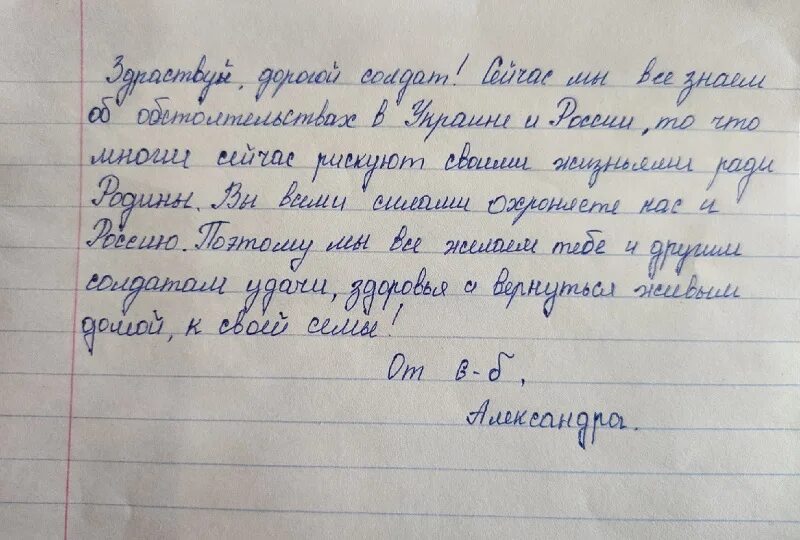 Здраствуй, дорогой солдат! Сейчас мы все знаем
об обстоятельствах в Украине и России, то что
многие сейчас рискуют своими жизньями ради
Родины. Вы всеми силами охроняете нас и
Россию. Поэтому мы все желаем тебе и другим
солдатам удачи, здоровья и вернуться живым
домой, к своей семьи!
От 6-б,
Александра.